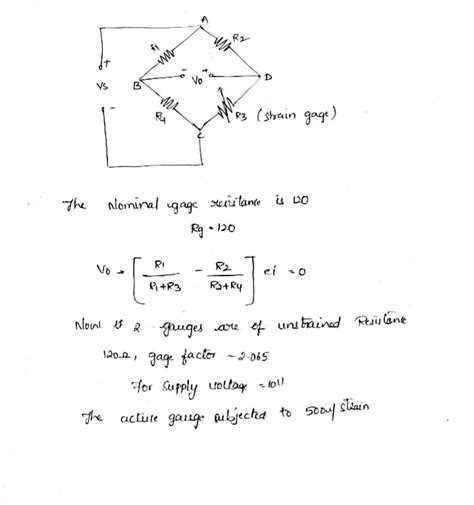 A
R1
R2
+
Vs
-
B
- Vo +
D
R4
R3 (Strain gage)
C
The Nominal gage resistance is 120
Rg = 120
Vo = [ R1 / R1+R3 - R2 / R2+R4 ] ei = 0
Now if 2 gauges are of unstrained Resistance
120Ω, gage factor - 2.065
For Supply voltage = 10V
The active gauge subjected to 500μ strain